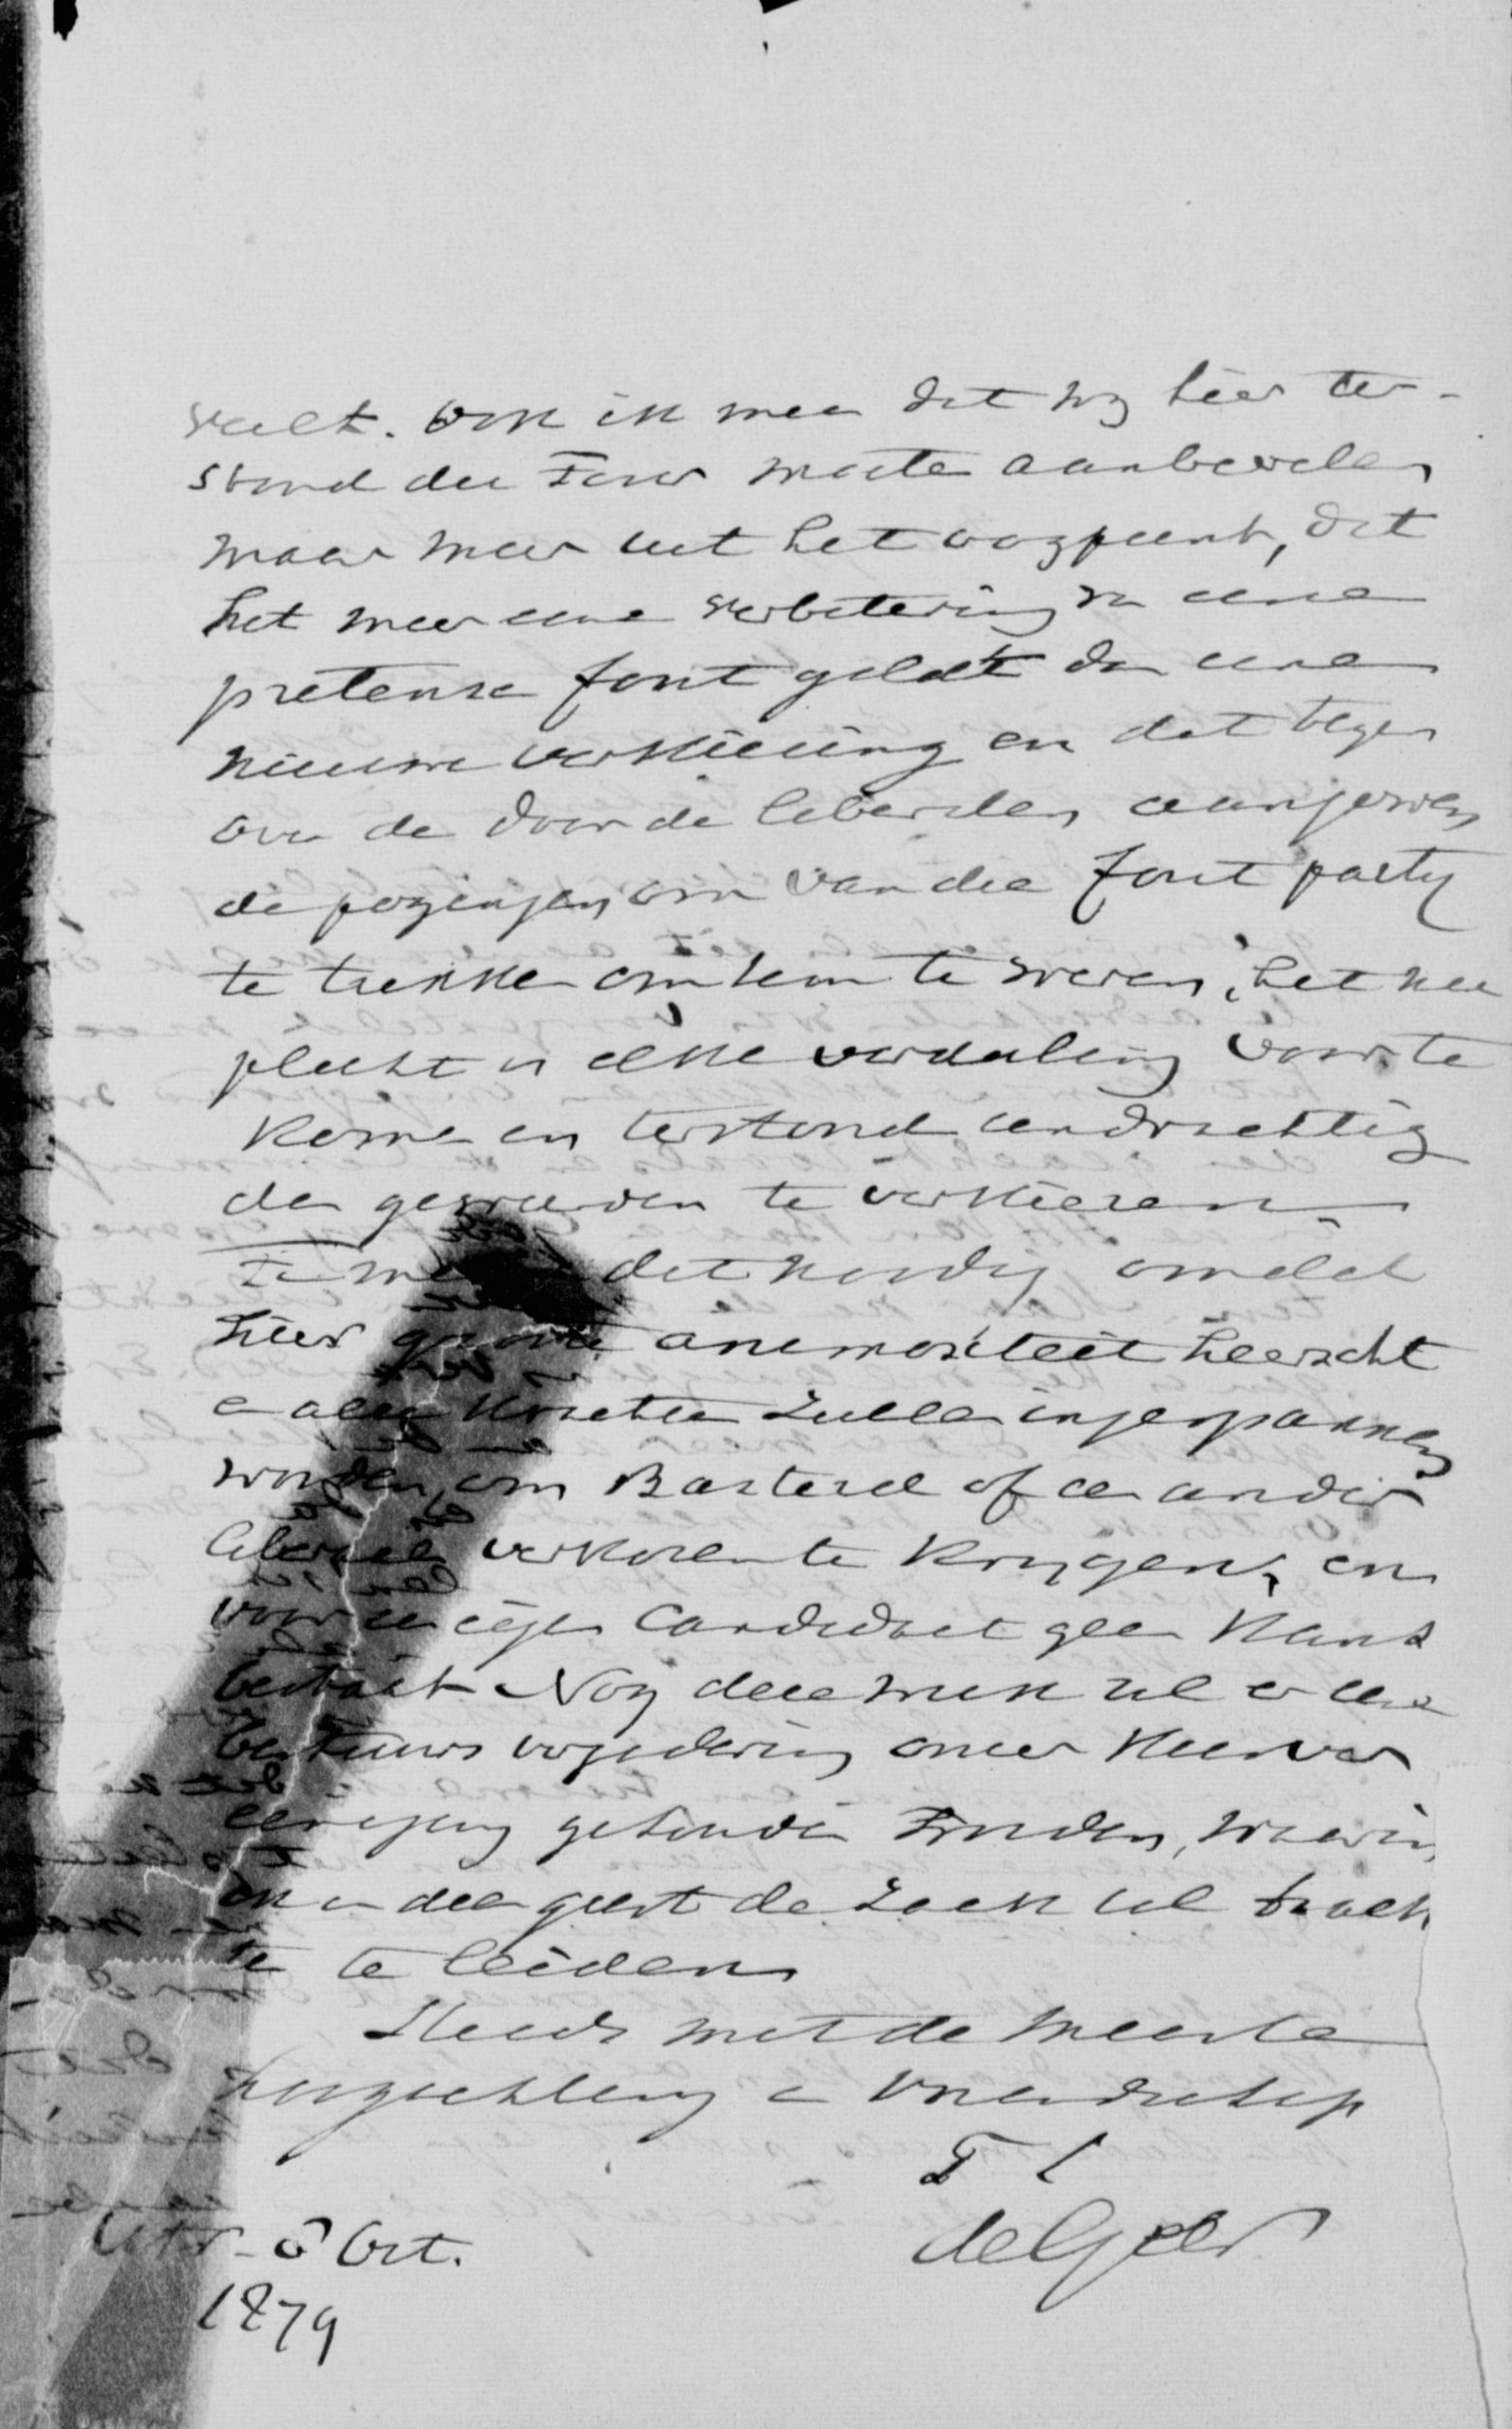 valt. Ook ik meen dat wij hier ter-
stond die Faur moeten aanbevelen
maar meer uit het oogpunt, dat
het meer eene verbetering van eene
pretense fout geldt dan eene
nieuwe verkiezing en dat tegen
over de door de liberalen aangewen
de pogingen om van die fout party
te trekken om hem te weren, het nu
plicht is elke verdeeling voor te
komen en terstond eendrachtig
den geweerden te verkiezen.
dat noodig omdat
hier groote animositeit heerscht
en alle krachten zullen ingespannen
worden, om Bastert of een ander
liberaal verkozen te krijgen, en
voor een eigen Candidaat geen kans
bestaat. Nog deze week zal er eene
bestuurs vergadering onzer Kiesver
eeniging gehouden worden, waarin
ik in den geest de zaak zal trach
te te leiden
Steeds met de meeste
hoogachting en vriendschap
T t
de Geer
Utr. 8 Oct.
1879